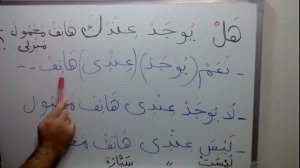 هَلْ يُوجَدْ عِنْدِكَ هَاتِفْ مَحْمُول ؟
مَنزلي
- نَعَمْ (يُوجَدْ) (عِنْدِي) هَاتِفْ - -
- لَا يُوجَدْ عِنْدِي هَاتِفْ مَحْمُول
- لَيْسَ عِنْدِي هَاتِفْ
لَيْسَتْ " سَيَّارَة "